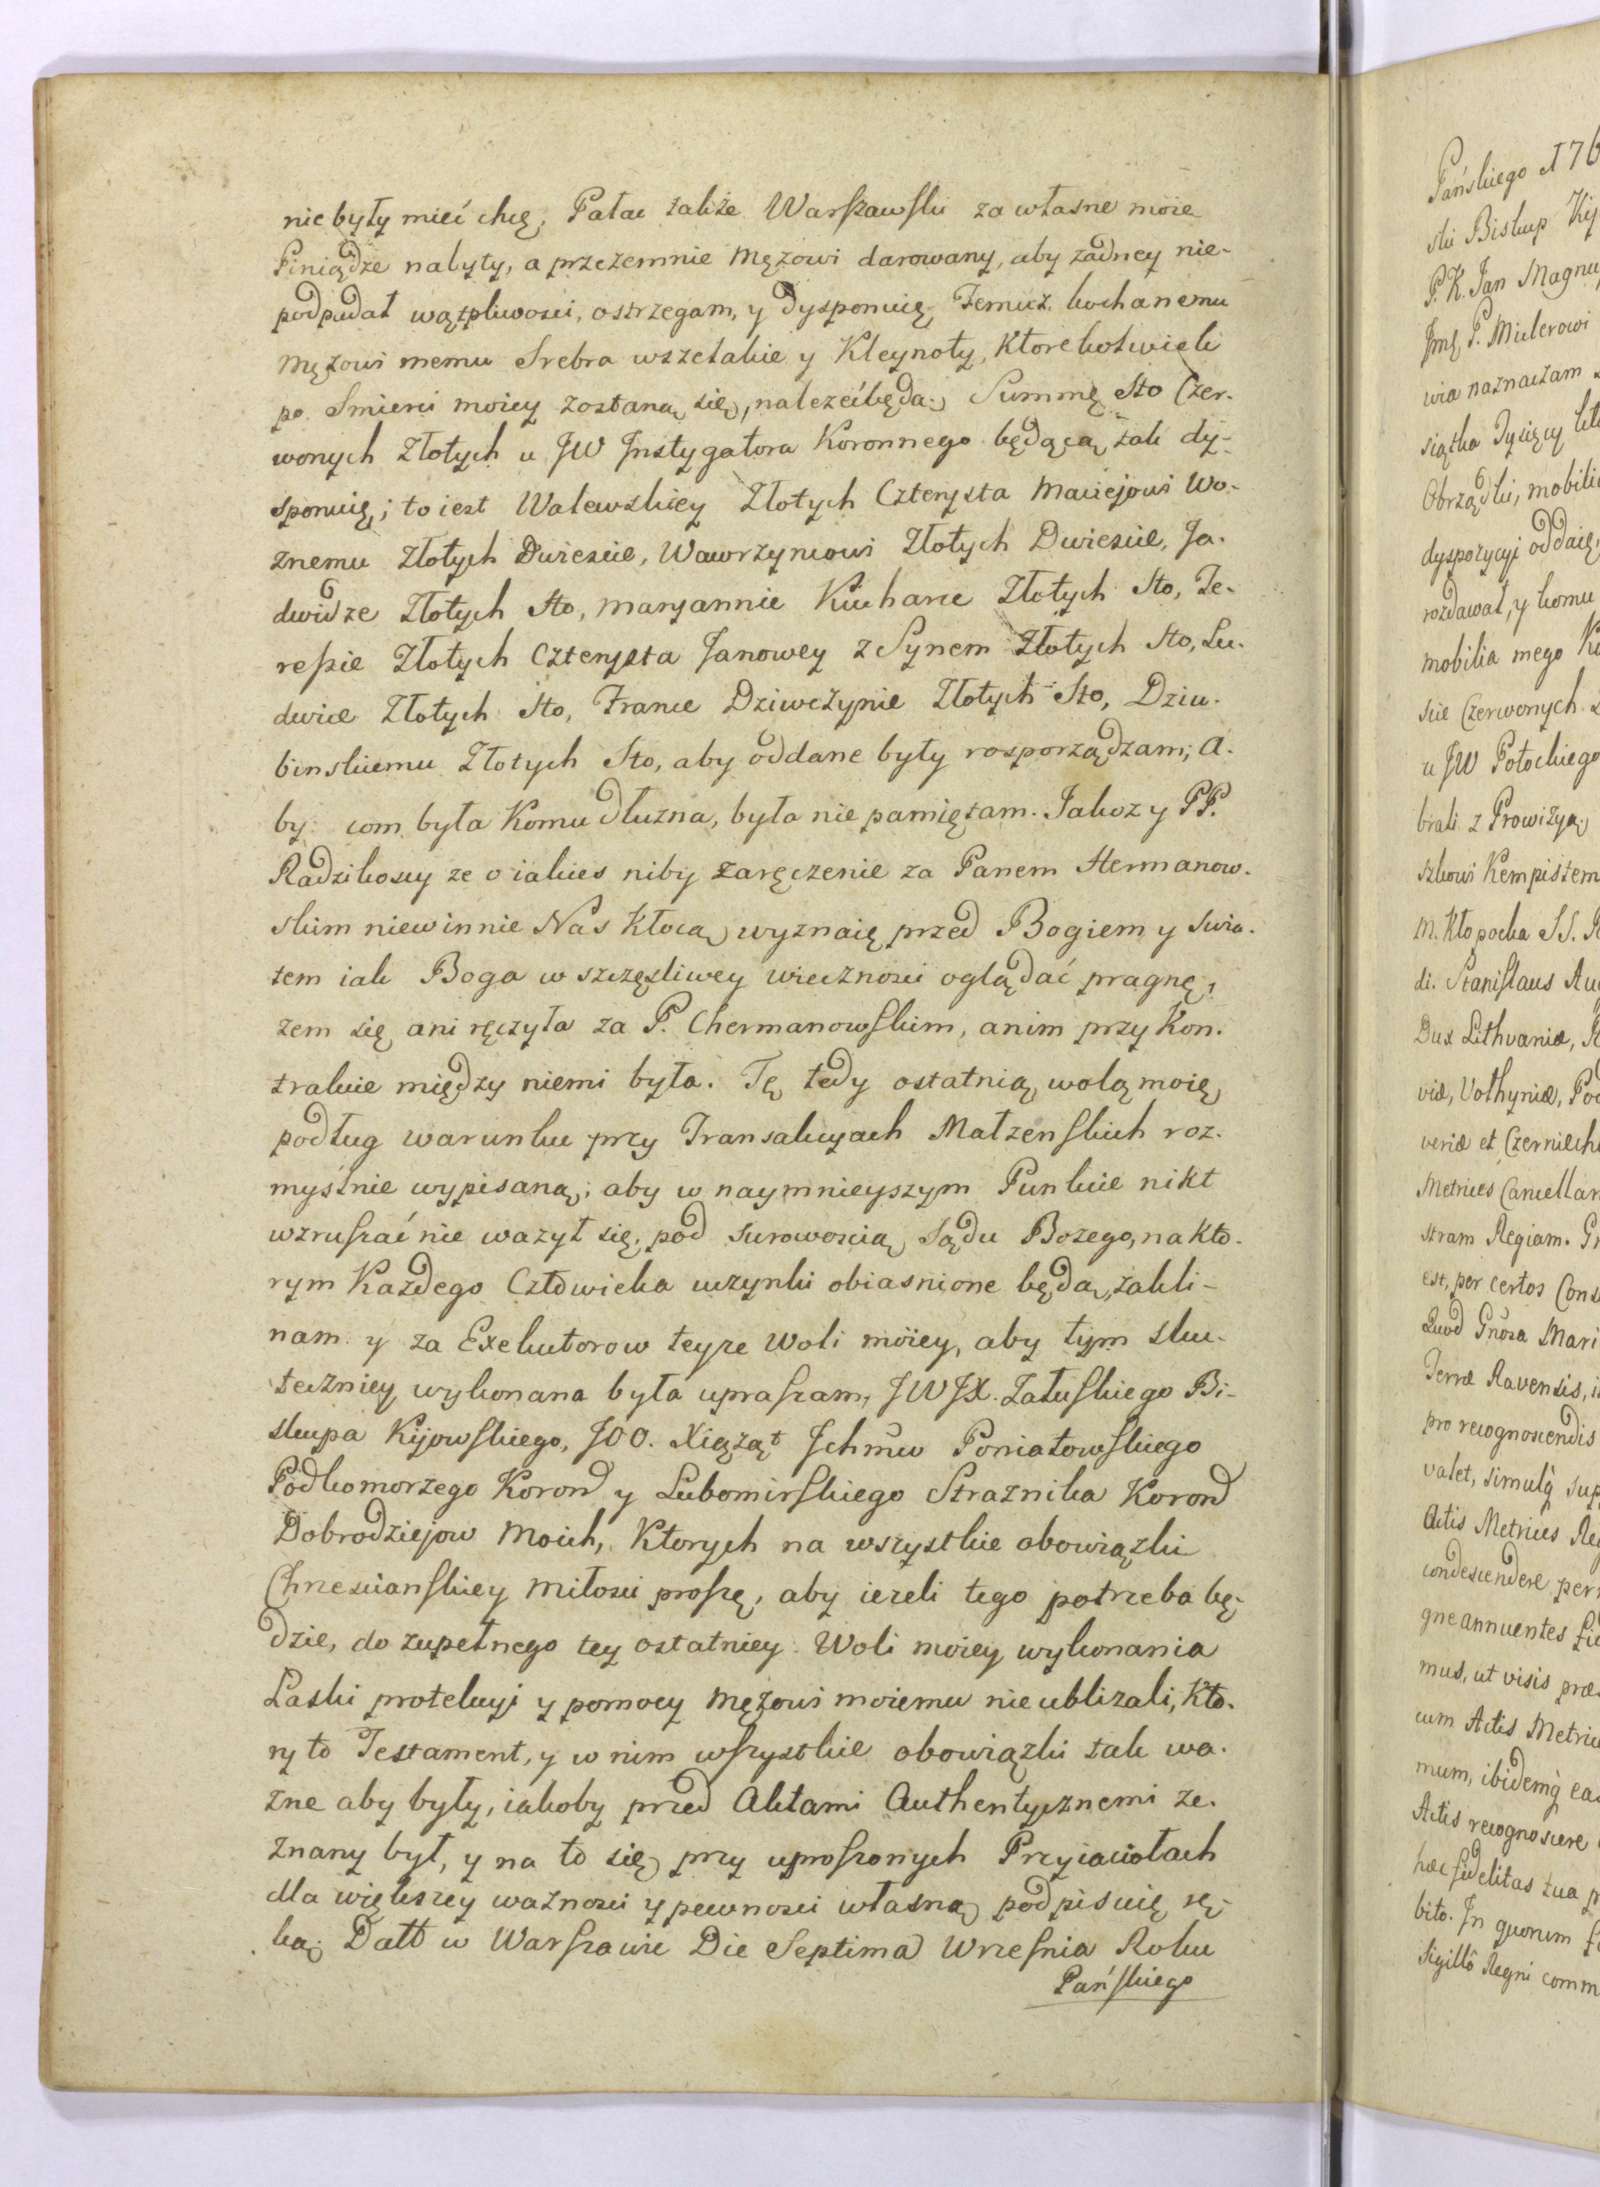 nie były mieć chcę, Pałac także Warszawski za własne moie
Piniądze nabyty, a przezemnie Mężowi darowany, aby żadney nie-
podpadał wątpliwosci, ostrzegam, y dysponuię, Temuż kochanemu
Mężowi memu Srebra wszelakie y Kleynoty, Ktorekolwiek
po Smierci moiey zostaną się, należeć będą. Summę Sto Czer-
wonych Złotych u JW Jnstygatora Koronnego będącą tak dy-
sponuię; to iest Walewskiey Złotych Czterysta Maciejowi Wo-
znemu Złotych Dwiescie, Wawrzyncowi Złotych Dwiescie, Ja-
dwidze Złotych Sto, Maryannie Kucharce Złotych Sto, Te-
ressie Złotych Czterysta Janowey z Synem Złotych Sto, Lu-
dwice Złotych Sto, France Dziwczynie Złotych Sto, Dziu-
binskiemu Złotych Sto, aby oddane były rosporządzam; A-
by com była Komu dłużna, była nie pamiętam. Jakoz y PP.
Radzikoscy ze o iakies niby zaręczenie za Panem Hermanow-
skim niewinnie Nas Kłocą, wyznaię przed Bogiem y swia-
tem iak Boga w szczęsliwey wiecznosci oglądać pragnę,
zem się ani ręczyła za P. Chermanowskim, anim przy Kon-
trakcie między niemi była. Tę tedy ostatnią wolą moię
podług warunku przy Transakcyach Małzenskich roz-
myślnie wypisaną; aby w naymnieyszym Punkcie nikt
wzruszać nie ważył się, pod surowoscią Sądu Bożego, na kto-
rym Każdego Człowieka uczynki obiasnione będą, zakli-
nam y za Exekutorow teyże Woli moiey, aby tym sku-
teczniey wykonana była upraszam, JWJX. Załuskiego Bi-
skupa Kijowskiego, JOO. Xiążąt Jchmw Poniatowskiego
Podkomorzego Koron y Lubomirskiego Straznika Koron
Dobrodziejow Moich, Ktorych na wszystkie obowiązki
Chrzescianskiey Miłosci proszę, aby iezeli tego potrzeba bę-
dzie, do zupełnego tey ostatniey Woli moiey wykonania
Łaski protekcyi y pomocy Mężowi moiemu nie ublizali, Kto-
ry to Testament, y w nim wszystkie obowiązki tak wa-
zne aby były, iakoby przed Aktami Authentycznemi ze-
znany był, y na to się przy uproszonych Przyiaciołach
dla większey ważnosci y pewnosci własną podpisuię rę-
ką. Datt w Warszawie Die Septima Wrzesnia Roku
Pańskiego
Pańskiego 176
ski Biskup Kij
P. K. Jan Magnu
Jmę P. Mulerowi
wia naznaczam
siątka Tysięcy
Obrządki, mobili
dyspozycyi oddaię,
rozdawał, y komu
mobilia mego
scie Czerwonych
u JW Potockiego
brali z Prowizyą
szkowi Kempistem
M. Kłopocka SS.
di. Stanislaus Au
Dux Lithvaniæ,
viæ, Volhyniæ, Pod
veriæ et Czerniech
Metrices Cancellar
stram Regiam. Gr
est, per certos Cons
Quod Gnosa Mari
Terræ Ravensis,
pro recognoscendis
valet, simulq sup
Actis Metrices Reg
condescendere per
gne annuentes
mus, ut visis præ
cum Actis Metric
mum, ibidemq ea
Actis recognoscere
hæc fidelitas tua
bito. Jn quorum
Sigillô Regni comm